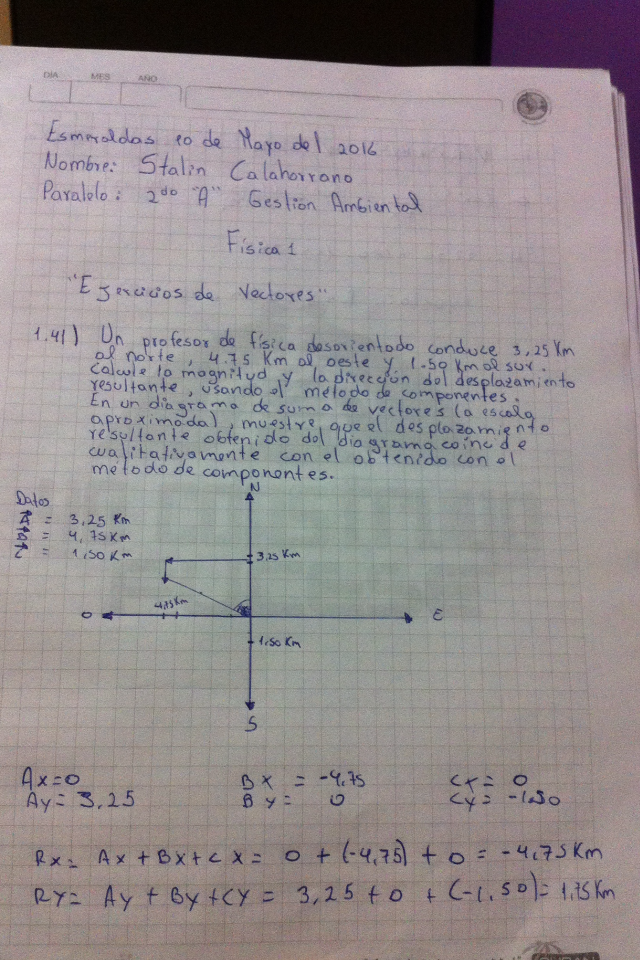 DIA MES AÑO
Esmeraldas 10 de Mayo del 2016
Nombre: Stalin Calahorrano
Paralelo: 2do "A" Gestión Ambiental
Física 1
"Ejercicios de Vectores"
1.41) Un profesor de física desorientado conduce 3,25 Km
al norte, 4.75 Km al oeste y 1.50 Km al sur.
Calcule la magnitud y la dirección del desplazamiento
resultante, usando el método de componentes.
En un diagrama de suma de vectores (a escala
aproximada), muestre que el desplazamiento
resultante obtenido del diagrama coincide
cualitativamente con el obtenido con el
método de componentes.
Datos
A = 3,25 Km
B = 4,75 Km
C = 1,50 Km
N
3,25 Km
4,75 Km
O E
1,50 Km
S
Ax=0 Bx = -4,75 Cx= 0
Ay= 3,25 By= 0 Cy= -1,50
Rx= Ax + Bx + Cx = 0 + (-4,75) + 0 = -4,75 Km
Ry= Ay + By + Cy = 3,25 + 0 + (-1,50) = 1,75 Km